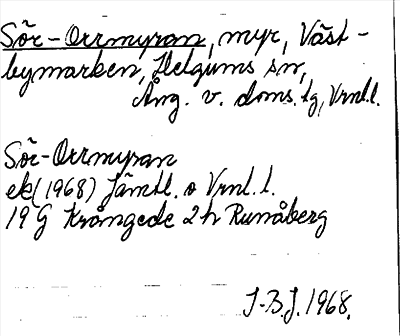 Sör-Orrmyran, myr, Väst-
bymarken, Helgums sn,
Ång. v. doms. tg, Vrnl.l.
Sör-Orrmyran
ek (1968) Jämtl. o Vrnl. l.
19 G Krångede 2h Runåberg
J-B.J. 1968.